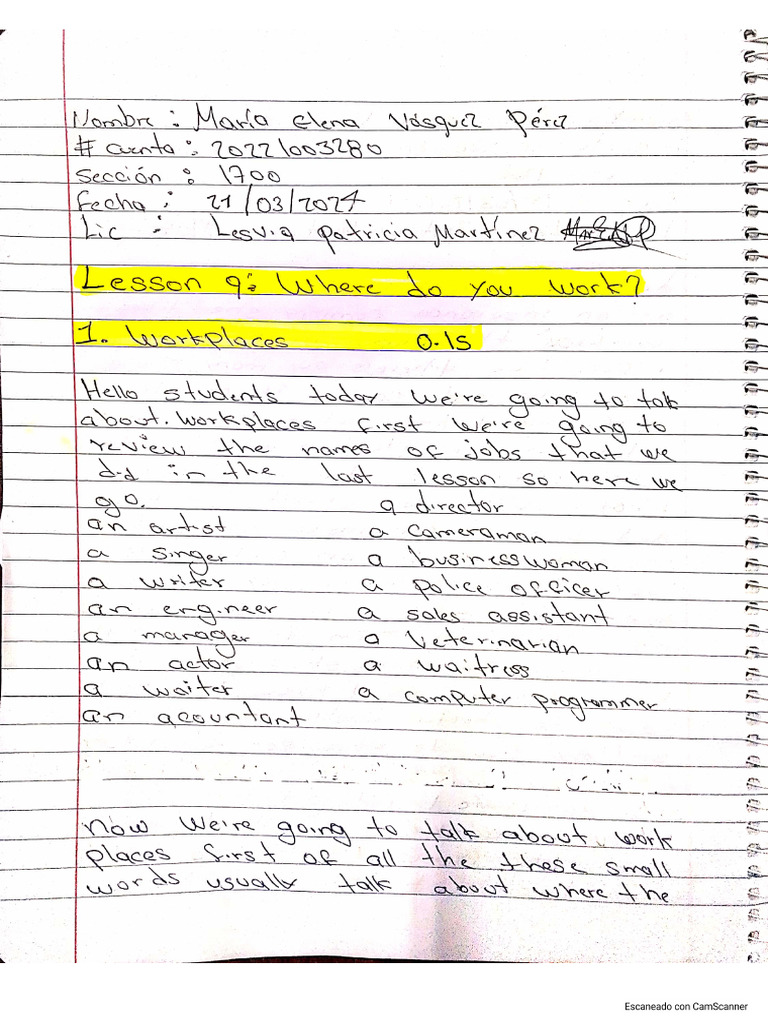 Nombre : María Elena Vásquez Pérez
# cuenta : 20221003280
Sección : 1700
Fecha : 21/03/2024
Lic : Lesvia Patricia Martínez
Lesson 9: Where do you work?
1. Workplaces 0.15
Hello students today we're going to talk
about. workplaces first we're going to
review the names of jobs that we
did in the last lesson so here we
go. a director
an artist a cameraman
a singer a businesswoman
a writer a police officer
an engineer a sales assistant
a manager a veterinarian
an actor a waitress
a waiter a computer programmer
an acountant
now we're going to talk about work
places first of all the these small
words usually talk about where the
Escaneado con CamScanner